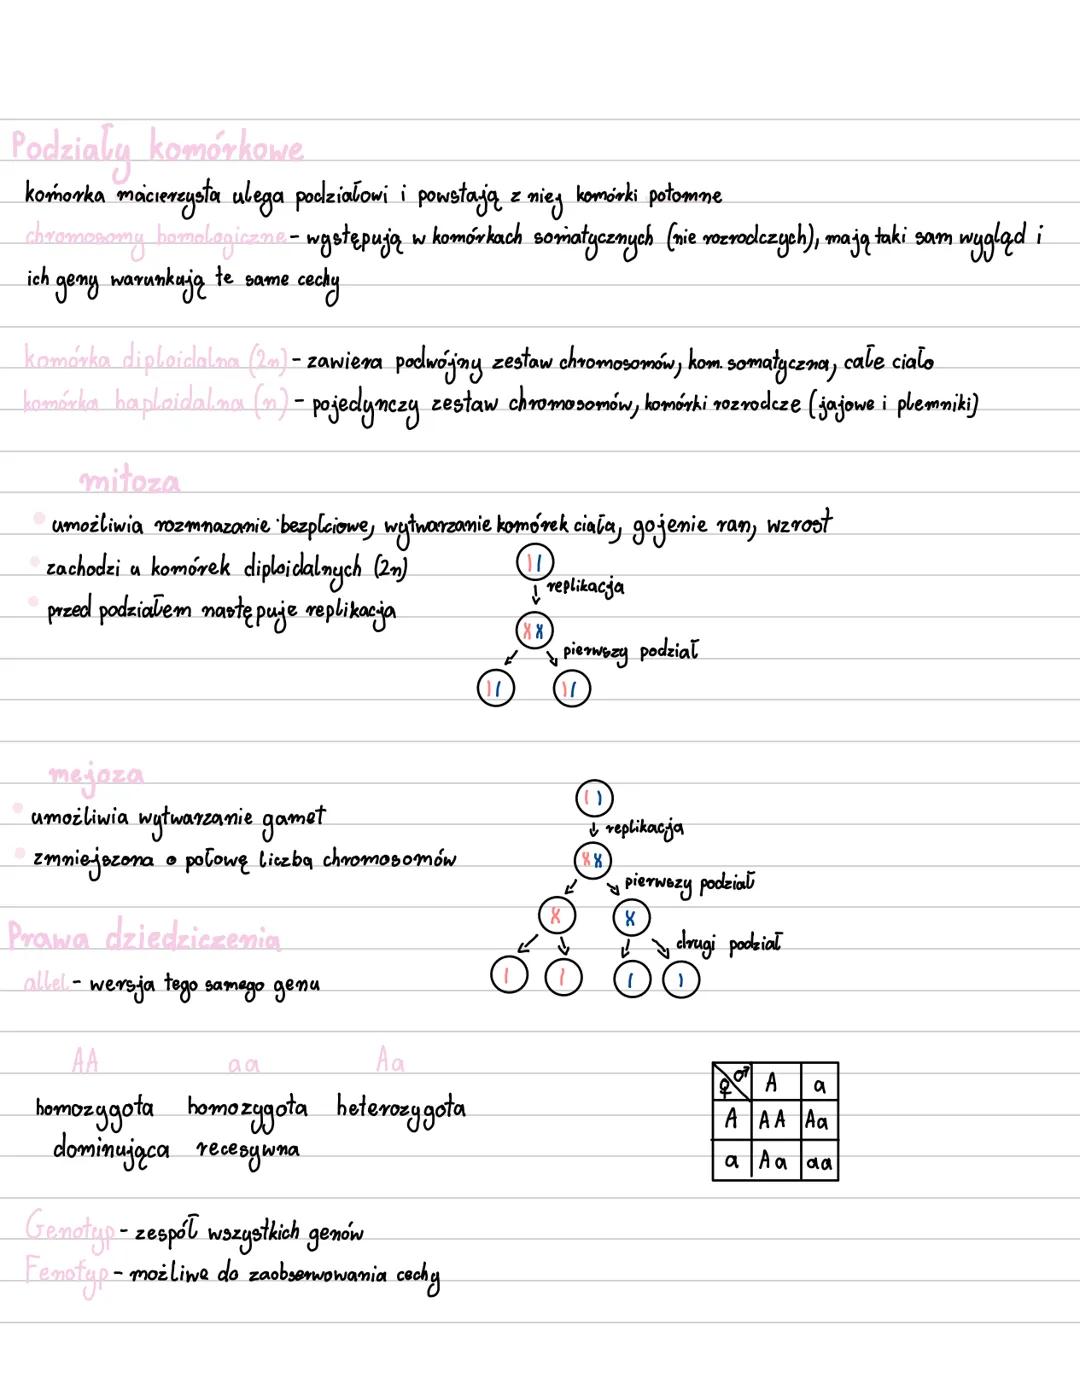 Podziały komórkowe
komórka macierzysta ulega podziałowi i powstają z niej komórki potomne
chromosomy homologiczne - występują w komórkach somatycznych (nie rozrodczych), mają taki sam wygląd i
ich geny warunkują te same cechy
komórka diploidalna (2n) - zawiera podwójny zestaw chromosomów, kom. somatyczna, całe ciało
komórka haploidalna (n) - pojedynczy zestaw chromosomów, komórki rozrodcze (jajowe i plemniki)
mitoza
umożliwia rozmnazanie bezpłciowe, wytwarzanie komórek ciała, gojenie ran, wzrost
zachodzi u komórek diploidalnych (2n)
replikacja
przed podziałem następuje replikacja
pierwszy podział
mejoza
umożliwia wytwarzanie gamet
replikacja
zmniejszona o połowę liczba chromosomów
pierwszy podział
Prawa dziedziczenia
drugi podział
allel - wersja tego samego genu
AA aa Aa
homozygota homozygota heterozygota
dominująca recesywna
♀ ♂ A a
A AA Aa
a Aa aa
Genotyp - zespół wszystkich genów
Fenotyp - możliwe do zaobserwowania cechy